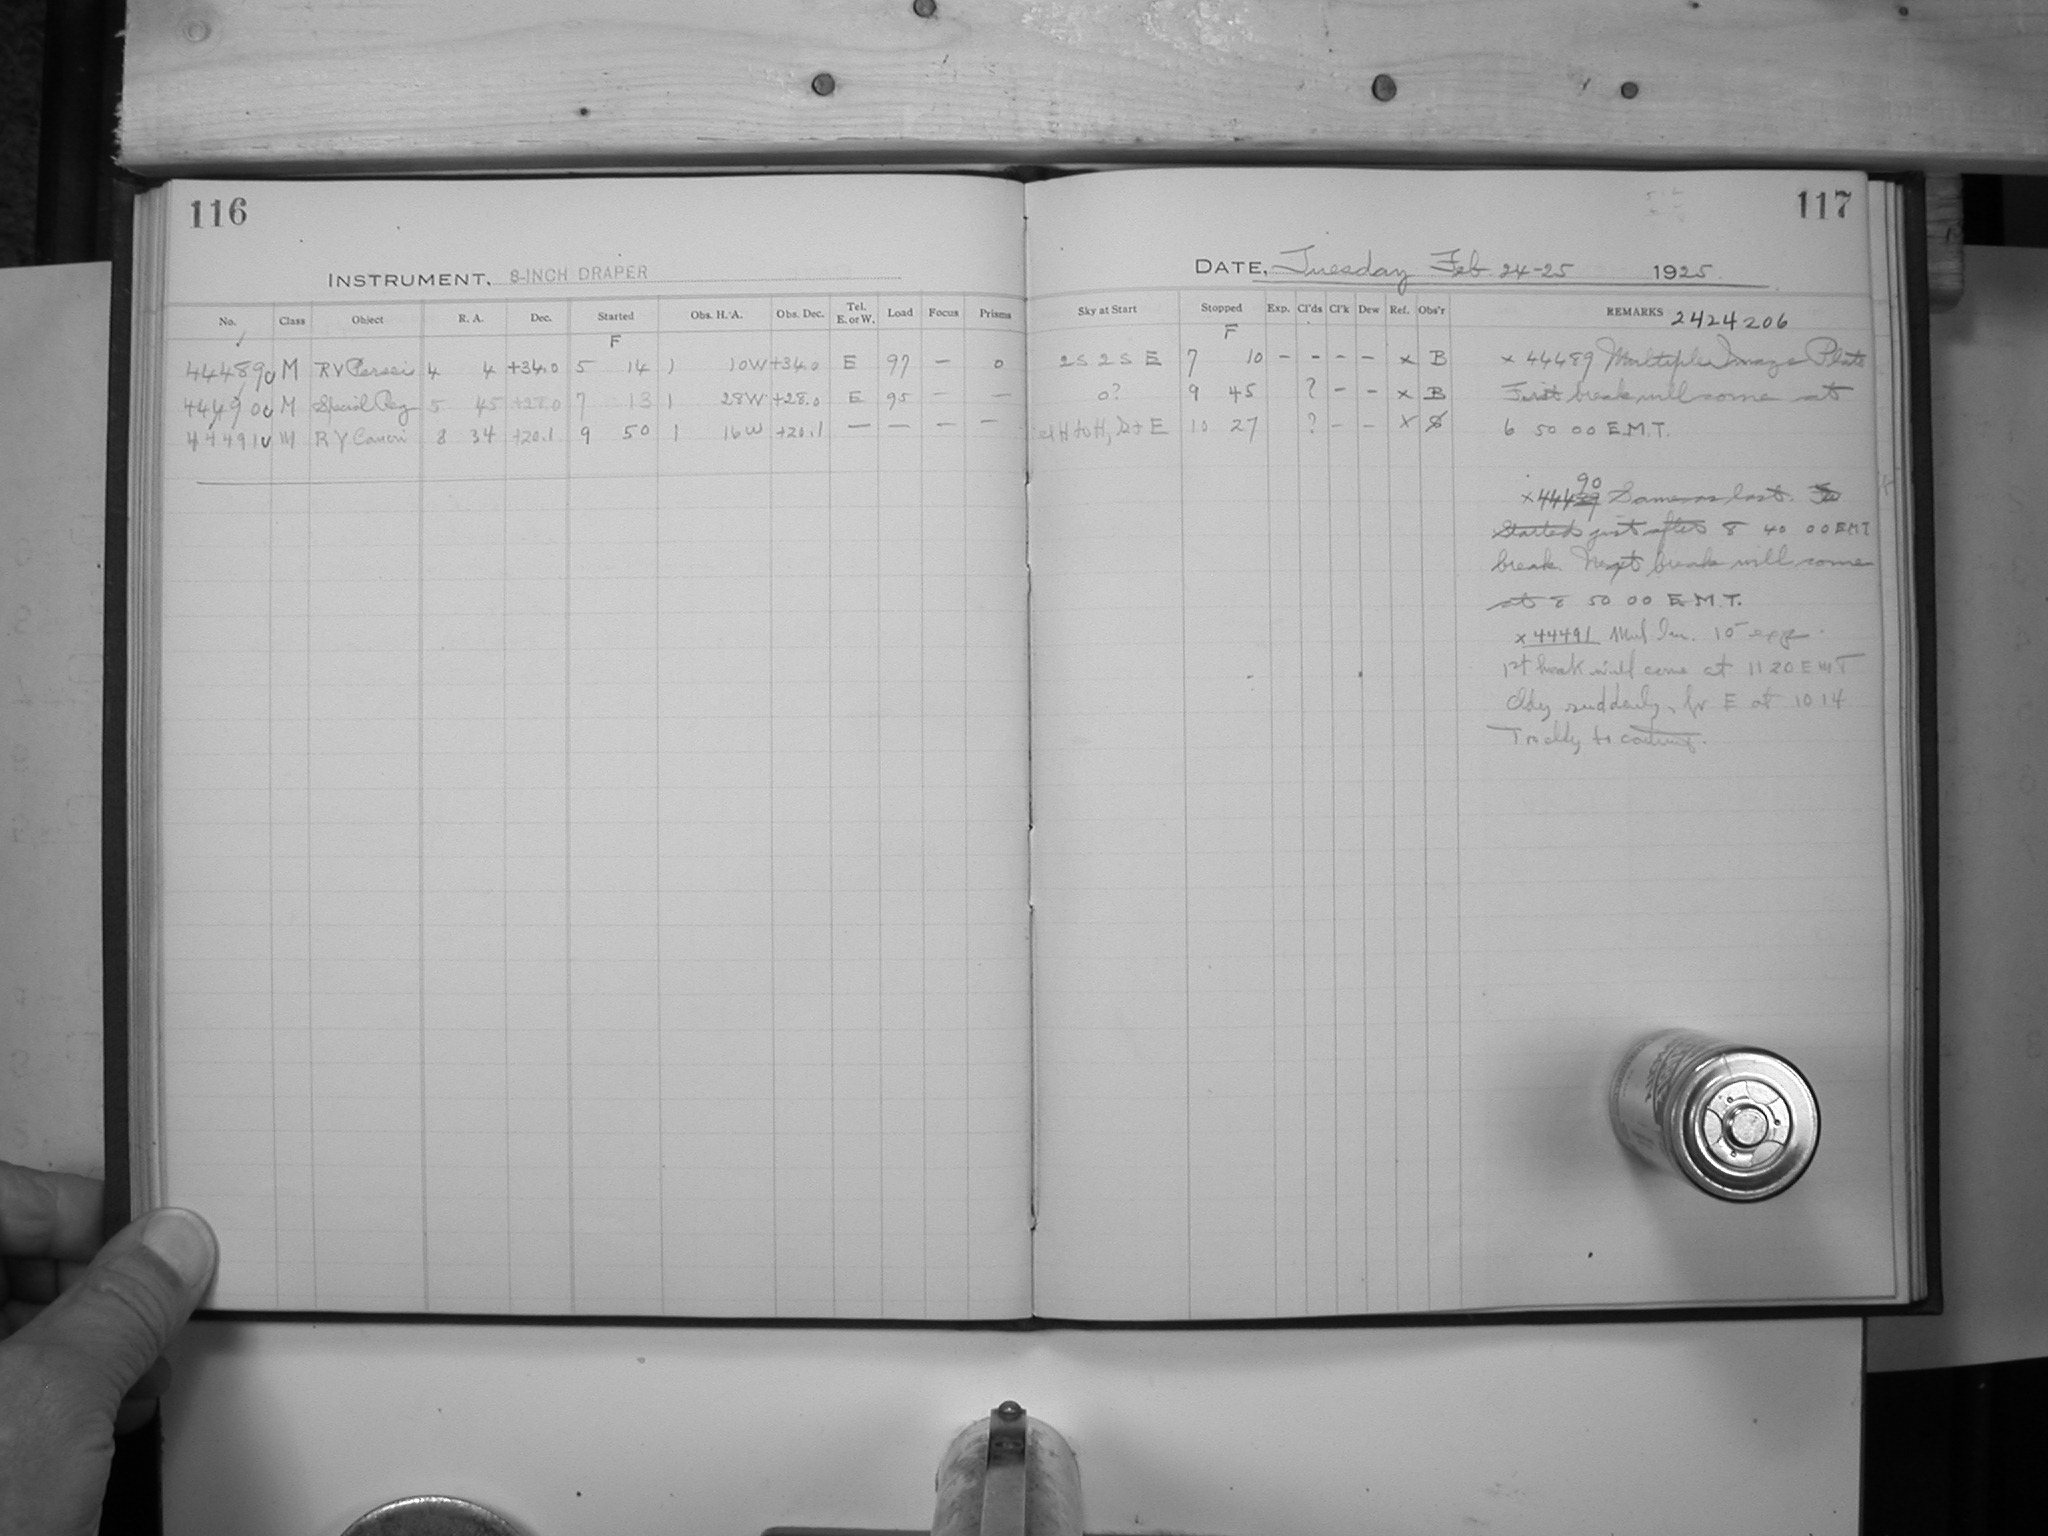 116
INSTRUMENT. 8-INCH DRAPER
No. Class Object R. A. Dec. Started Obs. H. A. Obs. Dec. Tel. E. or W. Load Focus Prisms
F
44489 M RV Persei 4 4 +34.0 5 14 1 10W +34.0 E 97 – 0
44490 M Special Reg 5 45 +28.0 7 13 1 28W +28.0 E 95 – –
44491 M RY Cancri 8 34 +20.1 9 50 1 16W +20.1 – – – –
117
DATE, Tuesday Feb 24-25 1925.
Sky at Start Stopped Exp. Cl'ds Cl'k Dew Ref. Obs'r REMARKS 2424206
F
2S 2S E 7 10 – – – – x B
0? 9 45 ? – – x B
H to H, E 10 27 ? – – x
x 44489 Multiple Image Plate
First break will come at
6 50 00 E.M.T.
x 44490 Same as last.
Started just after 8 40 00 EMT
break. Next break will come
at 8 50 00 E.M.T.
x 44491 Mul Im. 10 exp.
1st break will come at 11 20 EMT
Cldy suddenly, fr E at 10 14
Too cldy to continue.